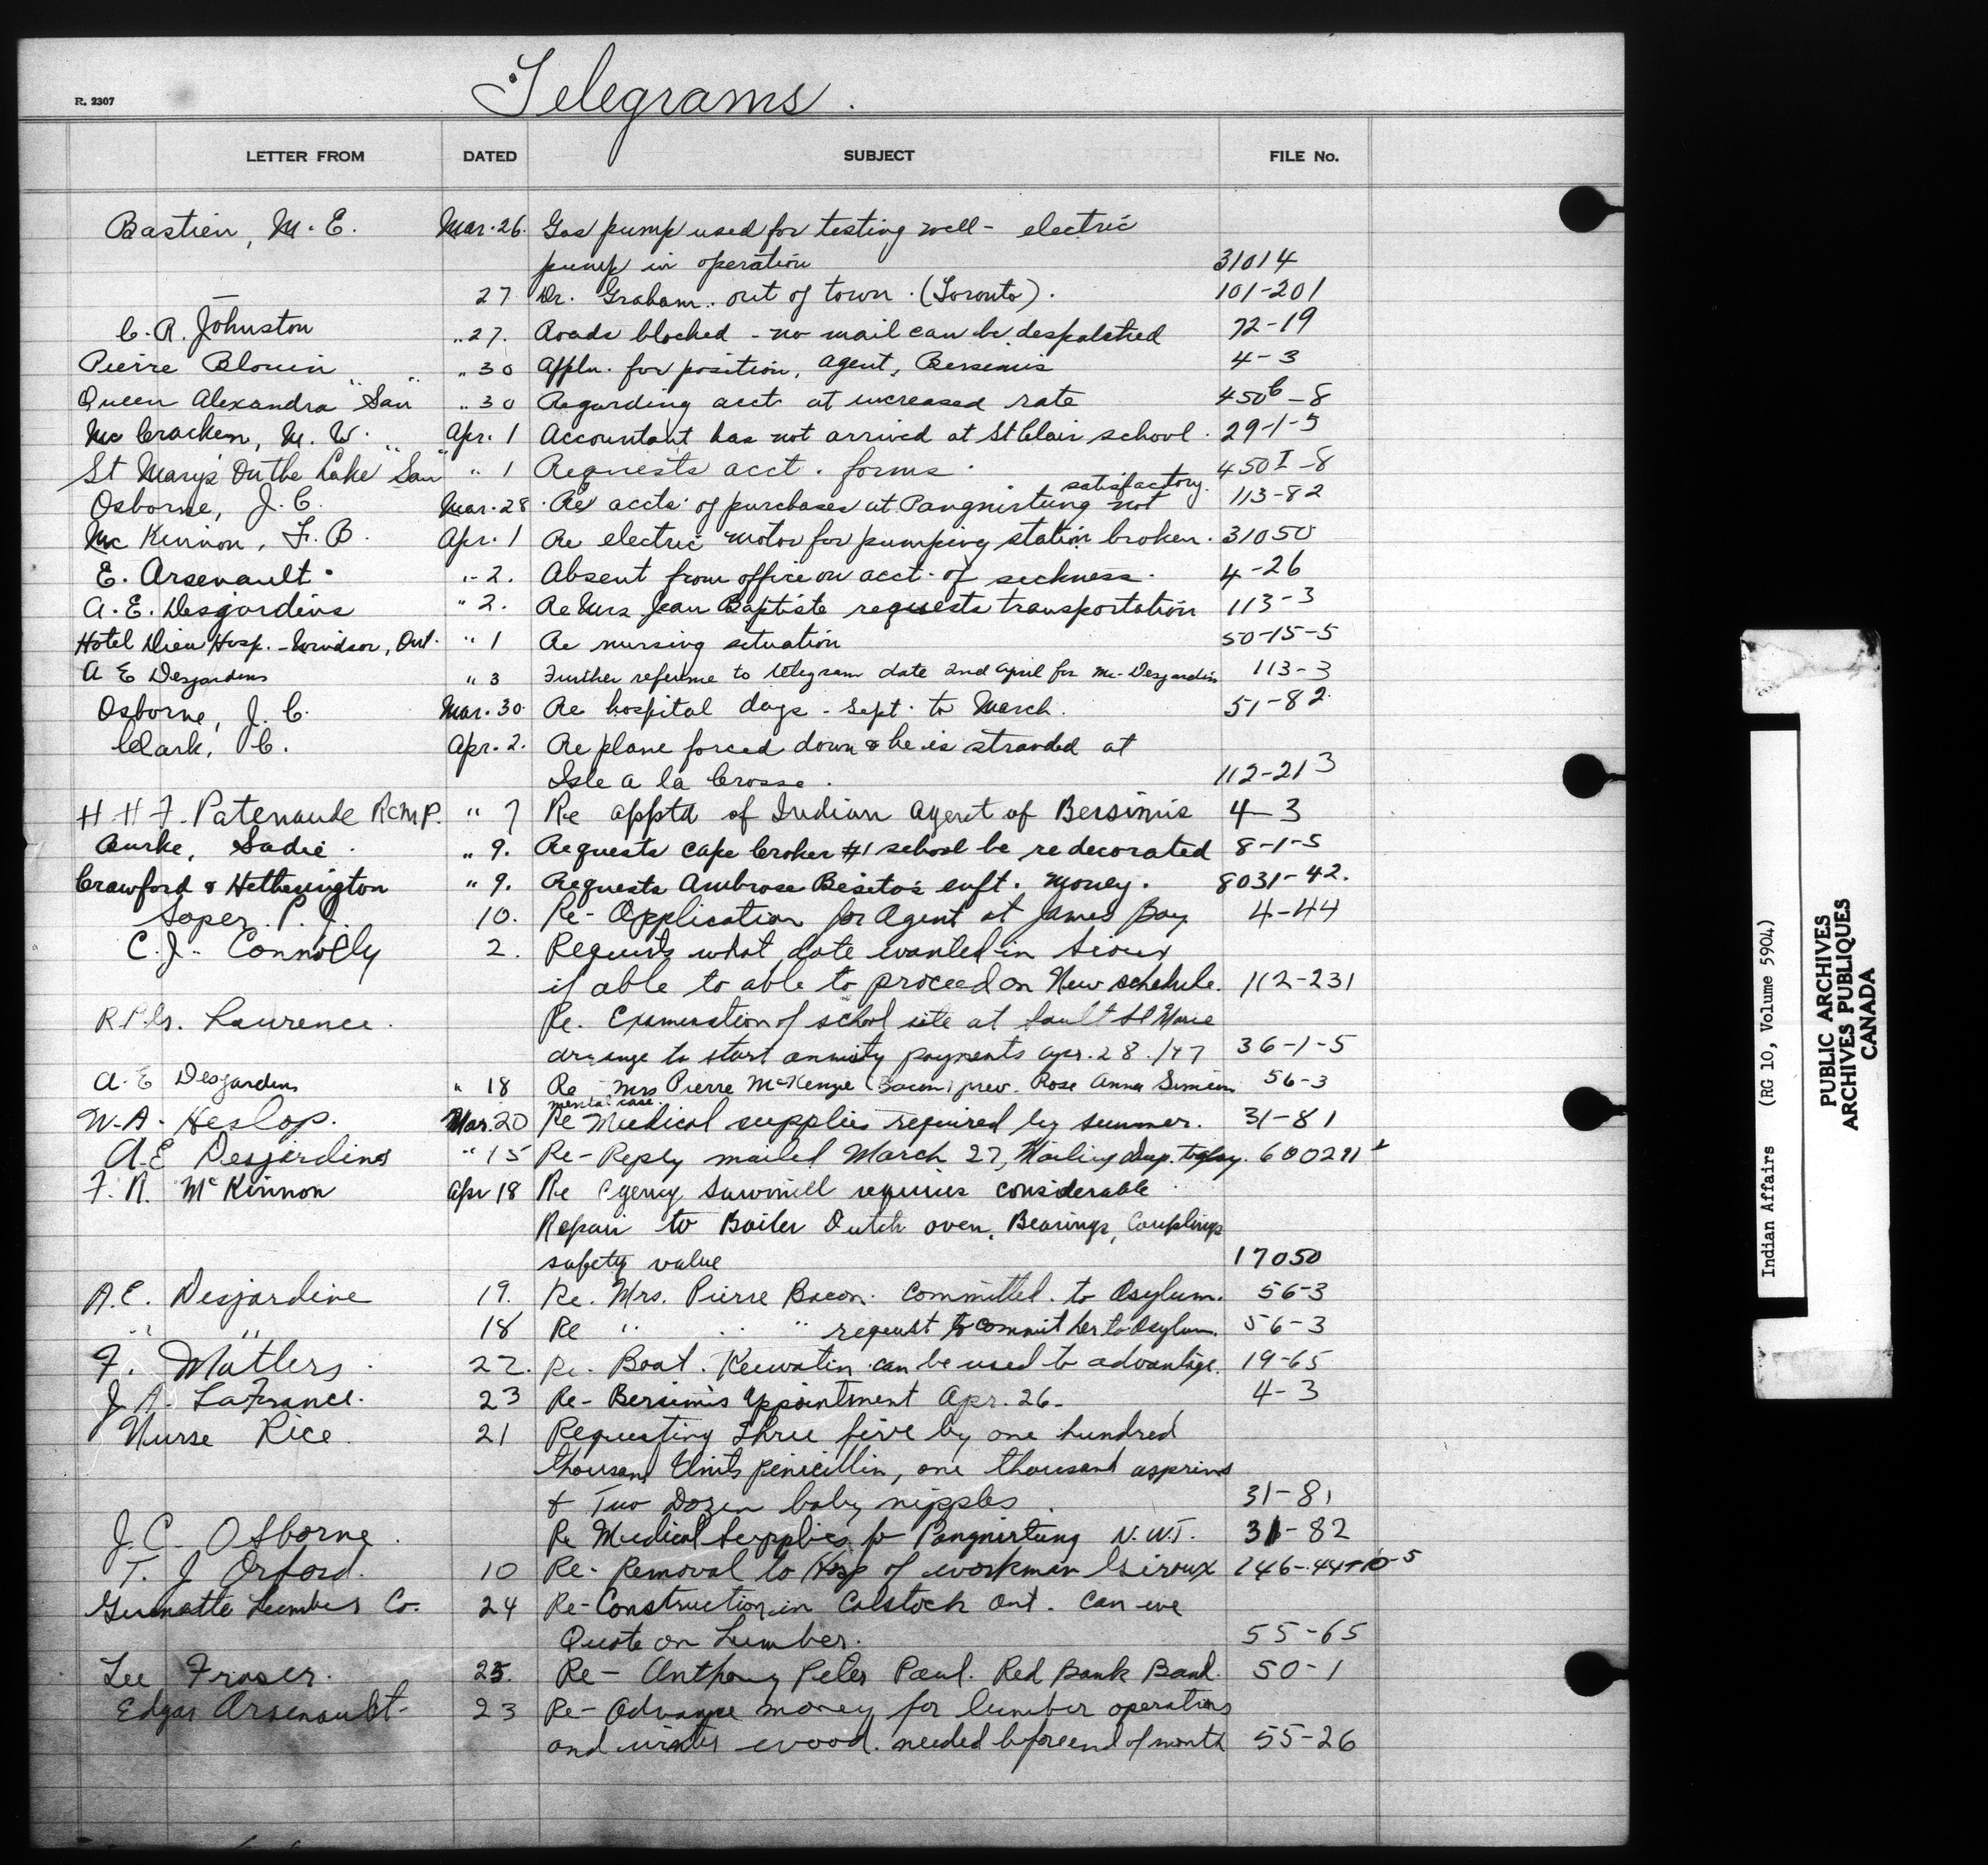 R. 2307
Telegrams.
LETTER FROM DATED SUBJECT FILE No.
Bastien, M. E. Mar. 26. Gas pump used for testing well - electric
pump in operation 31014
27 Dr. Graham. out of town. (Toronto). 101-201
C. R. Johnston " 27. Roads blocked - no mail can be despatched 72-19
Pierre Blouin " 30 Appln. for position, agent, Bersimis 4-3
Queen Alexandra "San" " 30 Regarding acct at increased rate 450 6-8
McCracken, M. W. Apr. 1 Accountant has not arrived at St Clair school. 29-1-5
St Mary's On the Lake "San" " 1 Requests acct. forms. 450 I-8
satisfactory.
Osborne, J. C. Mar. 28. Re accts of purchases at Pangnirtung not 113-82
McKinnon, F. B. Apr. 1 Re electric motor for pumping station broken. 31050
E. Arsenault. " 2. Absent from office on acct. of sickness. 4-26
A. E. Desjardins " 2. Re Mrs Jean Baptiste requests transportation 113-3
Hotel Dieu Hosp. - Windsor, Ont. " 1 Re nursing situation 50-15-5
A E Desjardins " 3 Further reference to telegram date 2nd April for Mr. Desjardins 113-3
Osborne, J. C. Mar. 30 Re hospital days - Sept. to March. 51-82
Clark, C. Apr. 2. Re plane forced down & he is stranded at
Isle a la Crosse. 112-213
H H F. Patenaude RCMP. " 7 Re apptd of Indian Agent of Bersimis 4-3
Burke, Sadie. " 9. Requests Cape Croker #1 school be redecorated 8-1-5
Crawford & Hetherington " 9. Requests Ambrose enft. money. 8031-42.
Soper P. J. 10. Re- Application for Agent at James Bay 4-44
C. J. Connolly 2. Requests what date wanted in Sioux
if able to able to proceed on New schedule. 112-231
Laurence. Re. Examination of school site at Sault St Marie
arrange to start annuity payments Apr. 28. /47 36-1-5
A. E Desjardins " 18 Re Mrs Pierre McKenzie (Bacon) prev. Rose Anna Simeon 56-3
mental case.
W. A. Heslop. Mar. 20 Re Medical supplies required by summer. 31-81
A. E Desjardins " 15 Re- Reply mailed March 27, Mailing dup. today.
F. R. McKinnon Apr 18 Re Agency Sawmill requires considerable
Repair to Boiler Dutch oven, Bearings, Couplings
safety value 17050
A. E. Desjardine 19. Re. Mrs. Pierre Bacon. Committed. to Asylum. 56-3
" " 18 Re " " " request to commit her to Asylum. 56-3
F. Matters. 22. Re. Boat. Keewatin can be used to advantage. 19-65
J. A. LaFrance. 23 Re- Bersimis Appointment Apr. 26. 4-3
Nurse Rice 21 Requesting Three five by one hundred
thousand Units penicillin, one thousand asprins
& Two Dozen baby nipples. 31-81
J. C. Osborne. Re Medical Supplies for Pangnirtung N.W.T. 31-82
T. J Orford. 10 Re- Removal to Hosp of workman Giroux 146-44-10-5
Lumber Co. 24 Re- Construction in Calstock Ont. Can we
Quote on Lumber. 55-65
Lee Fraser. 25. Re- Anthony Peter Paul. Red Bank Band. 50-1
Edgar Arsenault- 23 Re- Advance money for lumber operations
and winter wood. needed before end of month 55-26
Indian Affairs (RG 10, Volume 5904)
PUBLIC ARCHIVES
ARCHIVES PUBLIQUES
CANADA